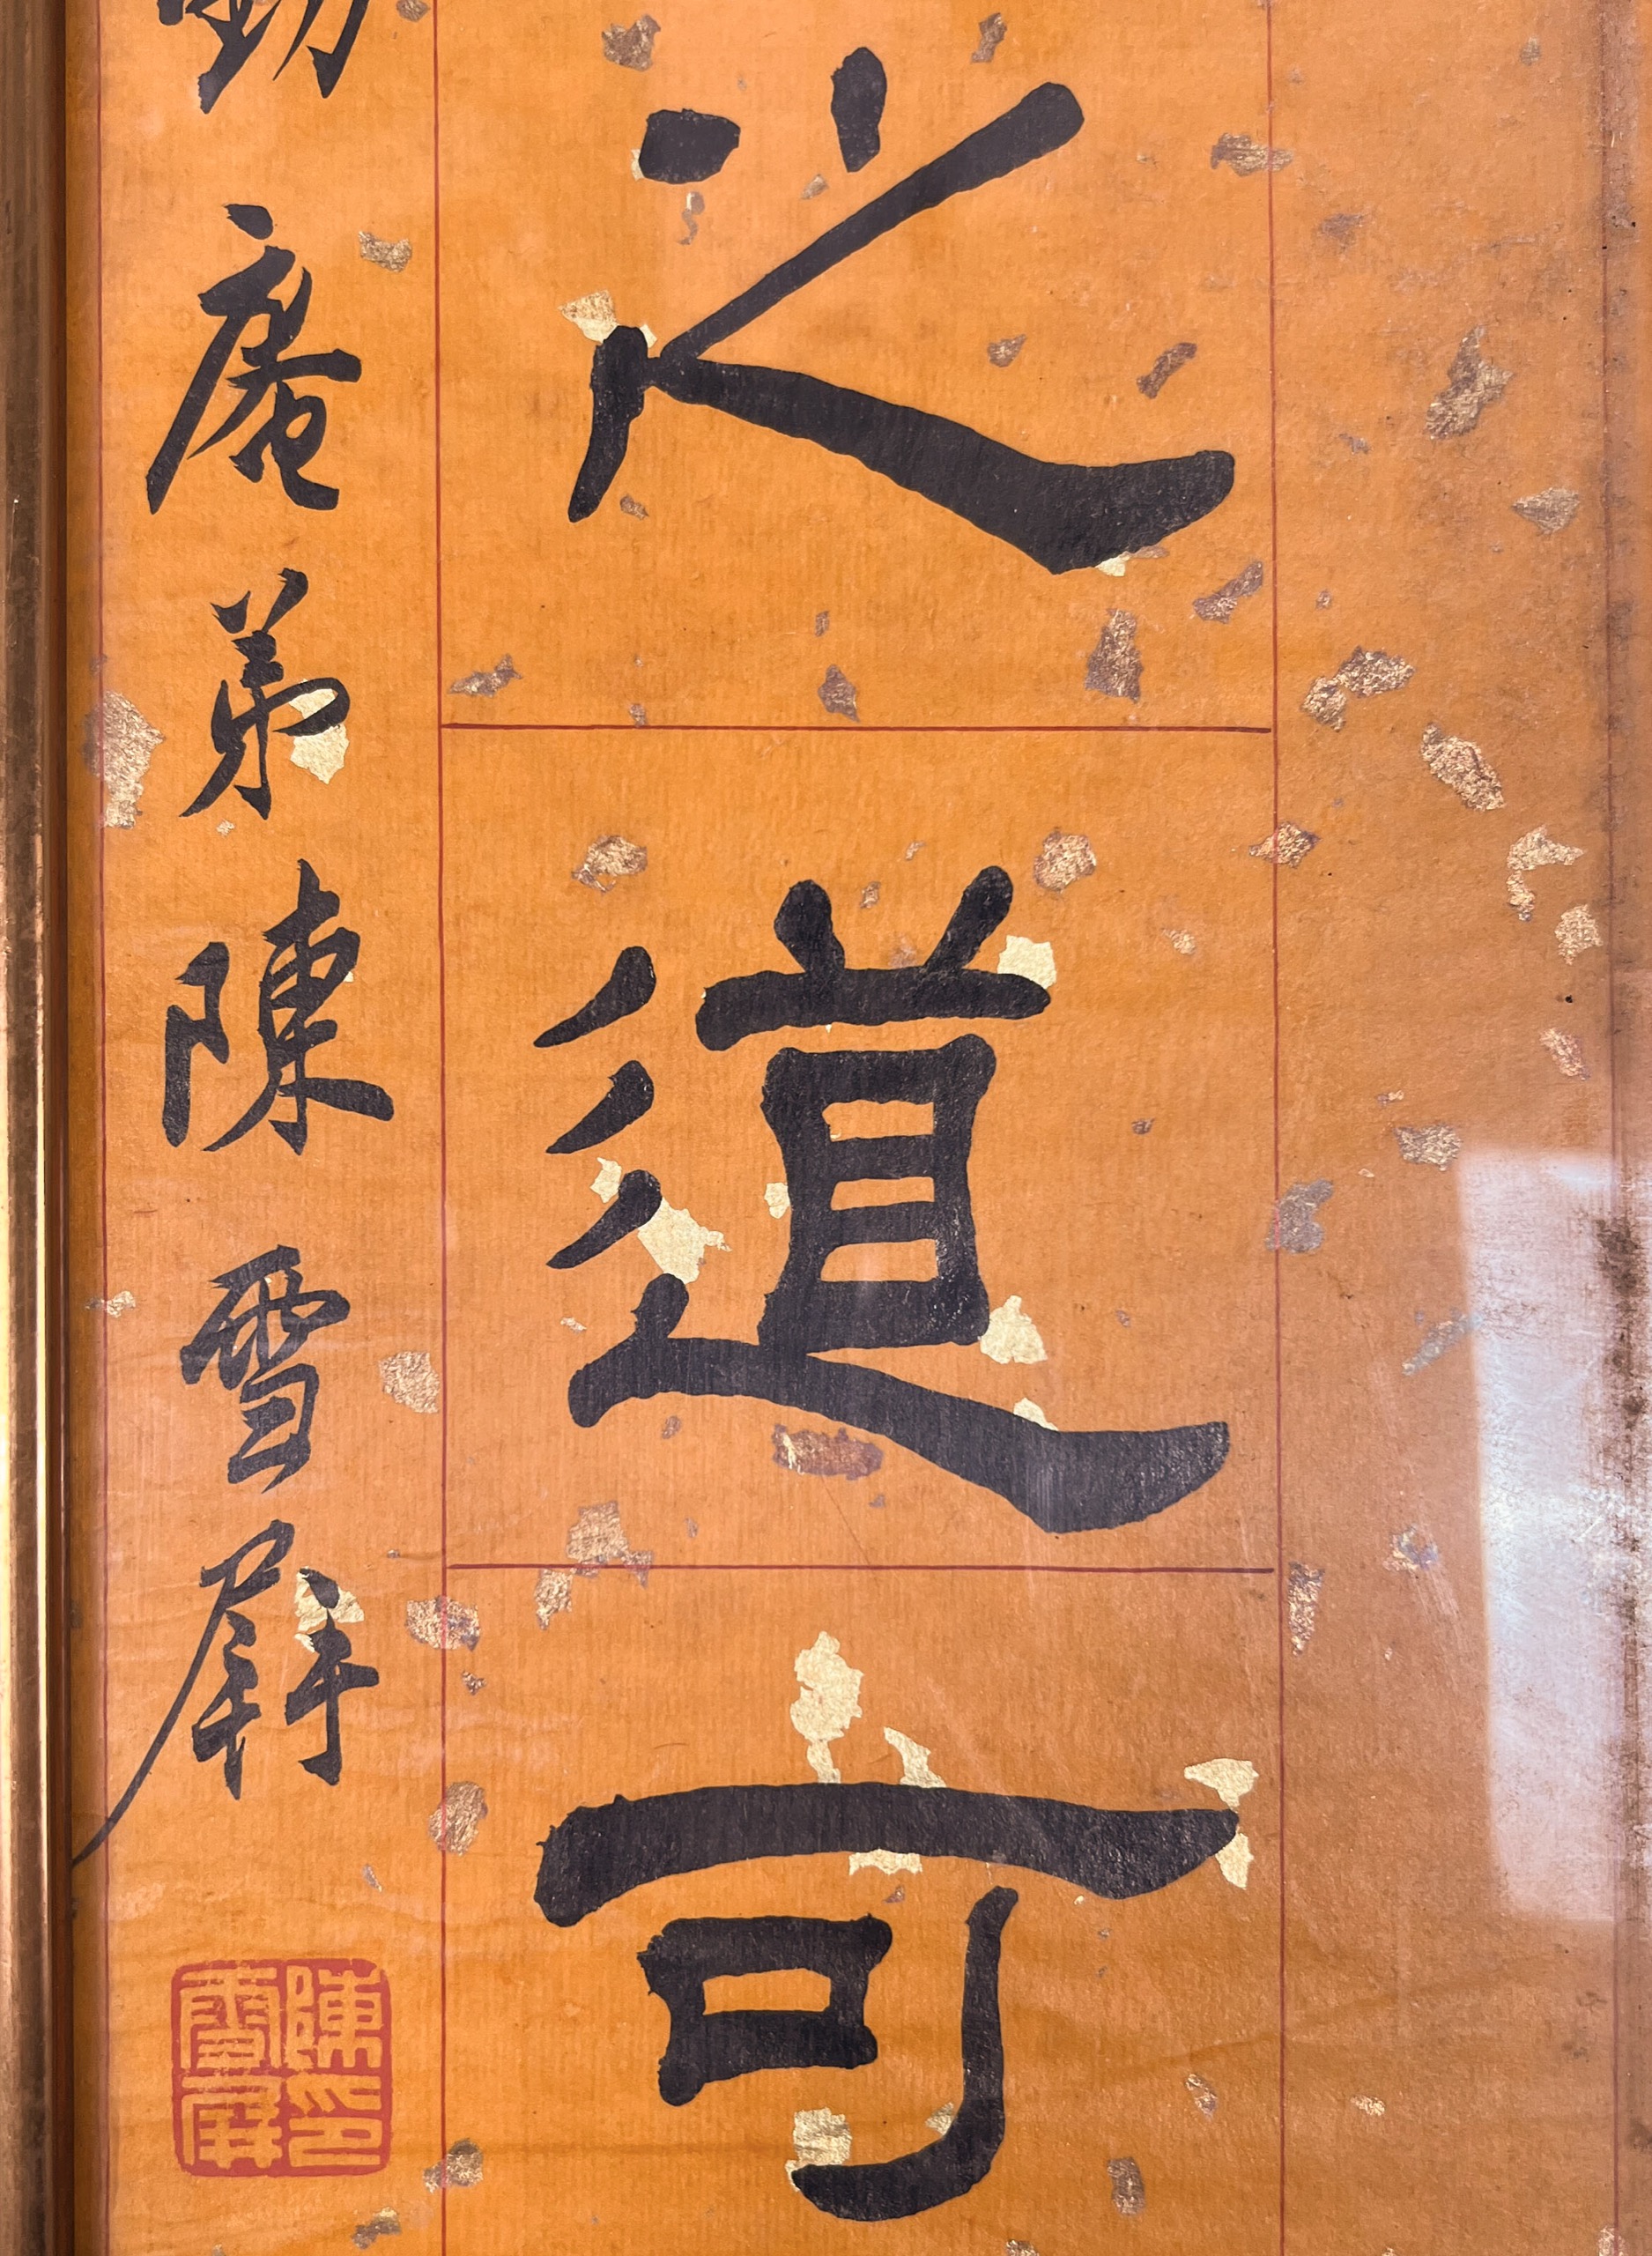 之道可
庵弟陳雪屏
陳印
雪屏